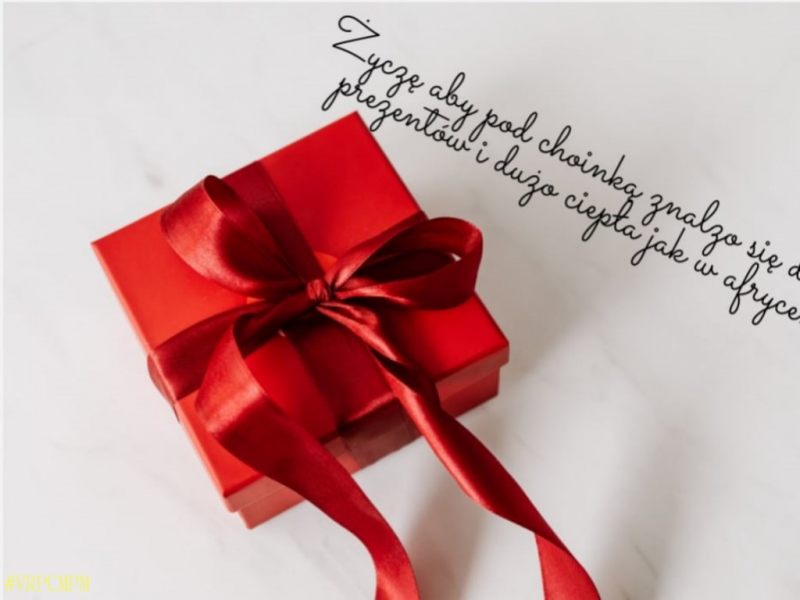 Życzę aby pod choinką znalzo się d
prezentów i dużo ciepła jak w afryce